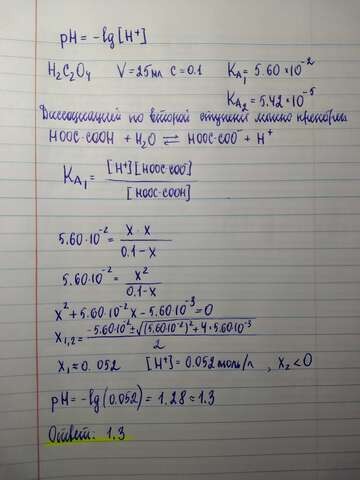 pH = -lg [H⁺]
H₂C₂O₄ V = 25мл c = 0.1 K_A₁ = 5.60 * 10⁻²
K_A₂ = 5.42 * 10⁻⁵
Диссоциацией по второй ступени можно пренебречь
HOOC-COOH + H₂O ⇌ HOOC-COO⁻ + H⁺
K_A₁ = [H⁺][HOOC-COO⁻] / [HOOC-COOH]
5.60·10⁻² = x · x / 0.1-x
5.60·10⁻² = x² / 0.1-x
x² + 5.60·10⁻²x - 5.60·10⁻³ = 0
x₁,₂ = -5.60·10⁻² ± √(5.60·10⁻²)² + 4·5.60·10⁻³ / 2
x₁ ≈ 0.052 [H⁺] = 0.052 моль/л , x₂ < 0
pH = -lg(0.052) = 1.28 ≈ 1.3
Ответ: 1.3